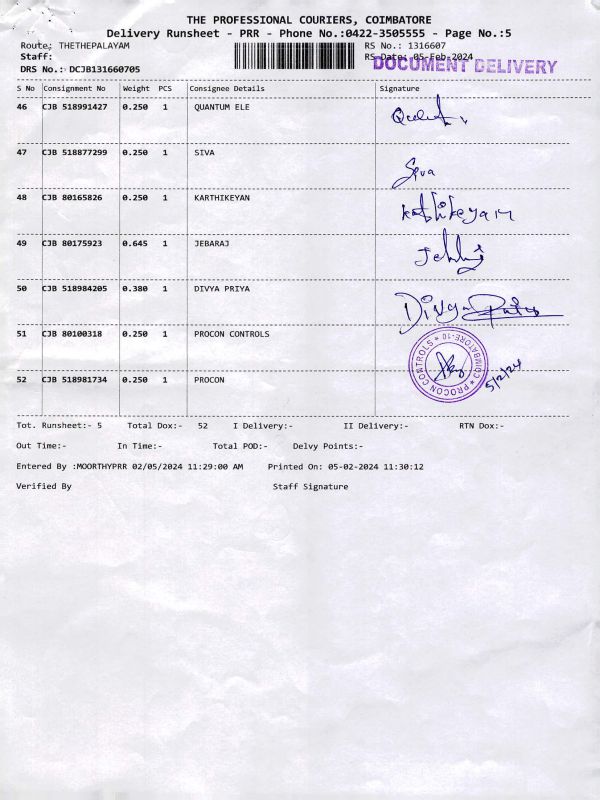 THE PROFESSIONAL COURIERS, COIMBATORE
Delivery Runsheet - PRR - Phone No.:0422-3505555 - Page No.:5
Route: THETHEPALAYAM RS No.: 1316607
Staff: RS Date: 05-Feb-2024
DOCUMENT DELIVERY
DRS No.: DCJB131660705
S No Consignment No Weight PCS Consignee Details Signature
46 CJB 518991427 0.250 1 QUANTUM ELE
47 CJB 518877299 0.250 1 SIVA Siva
48 CJB 80165826 0.250 1 KARTHIKEYAN Karthikeyan
49 CJB 80175923 0.645 1 JEBARAJ
50 CJB 518984205 0.380 1 DIVYA PRIYA Divya
51 CJB 80100318 0.250 1 PROCON CONTROLS
52 CJB 518981734 0.250 1 PROCON
PROCON CONTROLS * COIMBATORE-10 *
5/2/24
Tot. Runsheet:- 5 Total Dox:- 52 I Delivery:- II Delivery:- RTN Dox:-
Out Time:- In Time:- Total POD:- Delvy Points:-
Entered By :MOORTHYPRR 02/05/2024 11:29:00 AM Printed On: 05-02-2024 11:30:12
Verified By Staff Signature